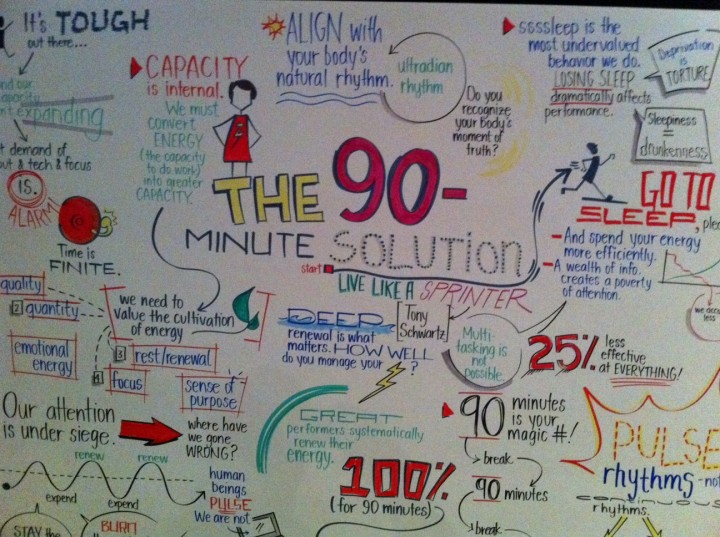 It's TOUGH
out there...
expanding
demand of
& tech & focus
IS.
ALARM!
Time is
FINITE.
CAPACITY
is internal.
We must
convert
ENERGY
(the capacity
to do work)
into greater
CAPACITY.
ALIGN with
your body's
natural rhythm.
ultradian
rhythm
Do you
recognize
your Body's
moment of
truth?
ssssleep is the
most undervalued
behavior we do.
LOSING SLEEP
dramatically affects
performance.
Deprivation
is
TORTURE
Sleepiness
=
drunkenness
THE 90-
MINUTE SOLUTION
start
LIVE LIKE A SPRINTER
GO TO
SLEEP,
- And spend your energy
more efficiently.
- A wealth of info.
creates a poverty
of attention.
quality
2 quantity
emotional
energy
we need to
value the cultivation
of energy
3 rest/renewal
4 focus
sense of
purpose
DEEP
renewal is what
matters. HOW WELL
do you manage your
?
Tony
Schwartz
Multi-
tasking is
not
possible.
25% less
effective
at EVERYTHING!
Our attention
is under siege.
where have
we gone
WRONG?
renew renew
expend
expend
human
beings
PULSE
We are not
STAY the
BURN
GREAT
performers systematically
renew their
energy.
100%
(for 90 minutes)
90 minutes
is your
magic #!
break
90 minutes
break
PULSE
rhythms - not
rhythms.